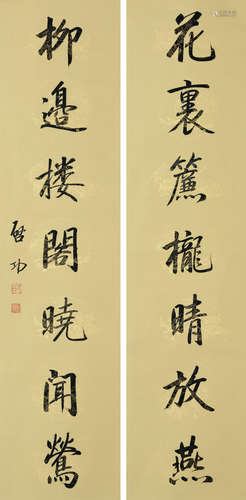 花裏簾櫳晴放燕
柳邉楼閣曉闻鶯
啓功